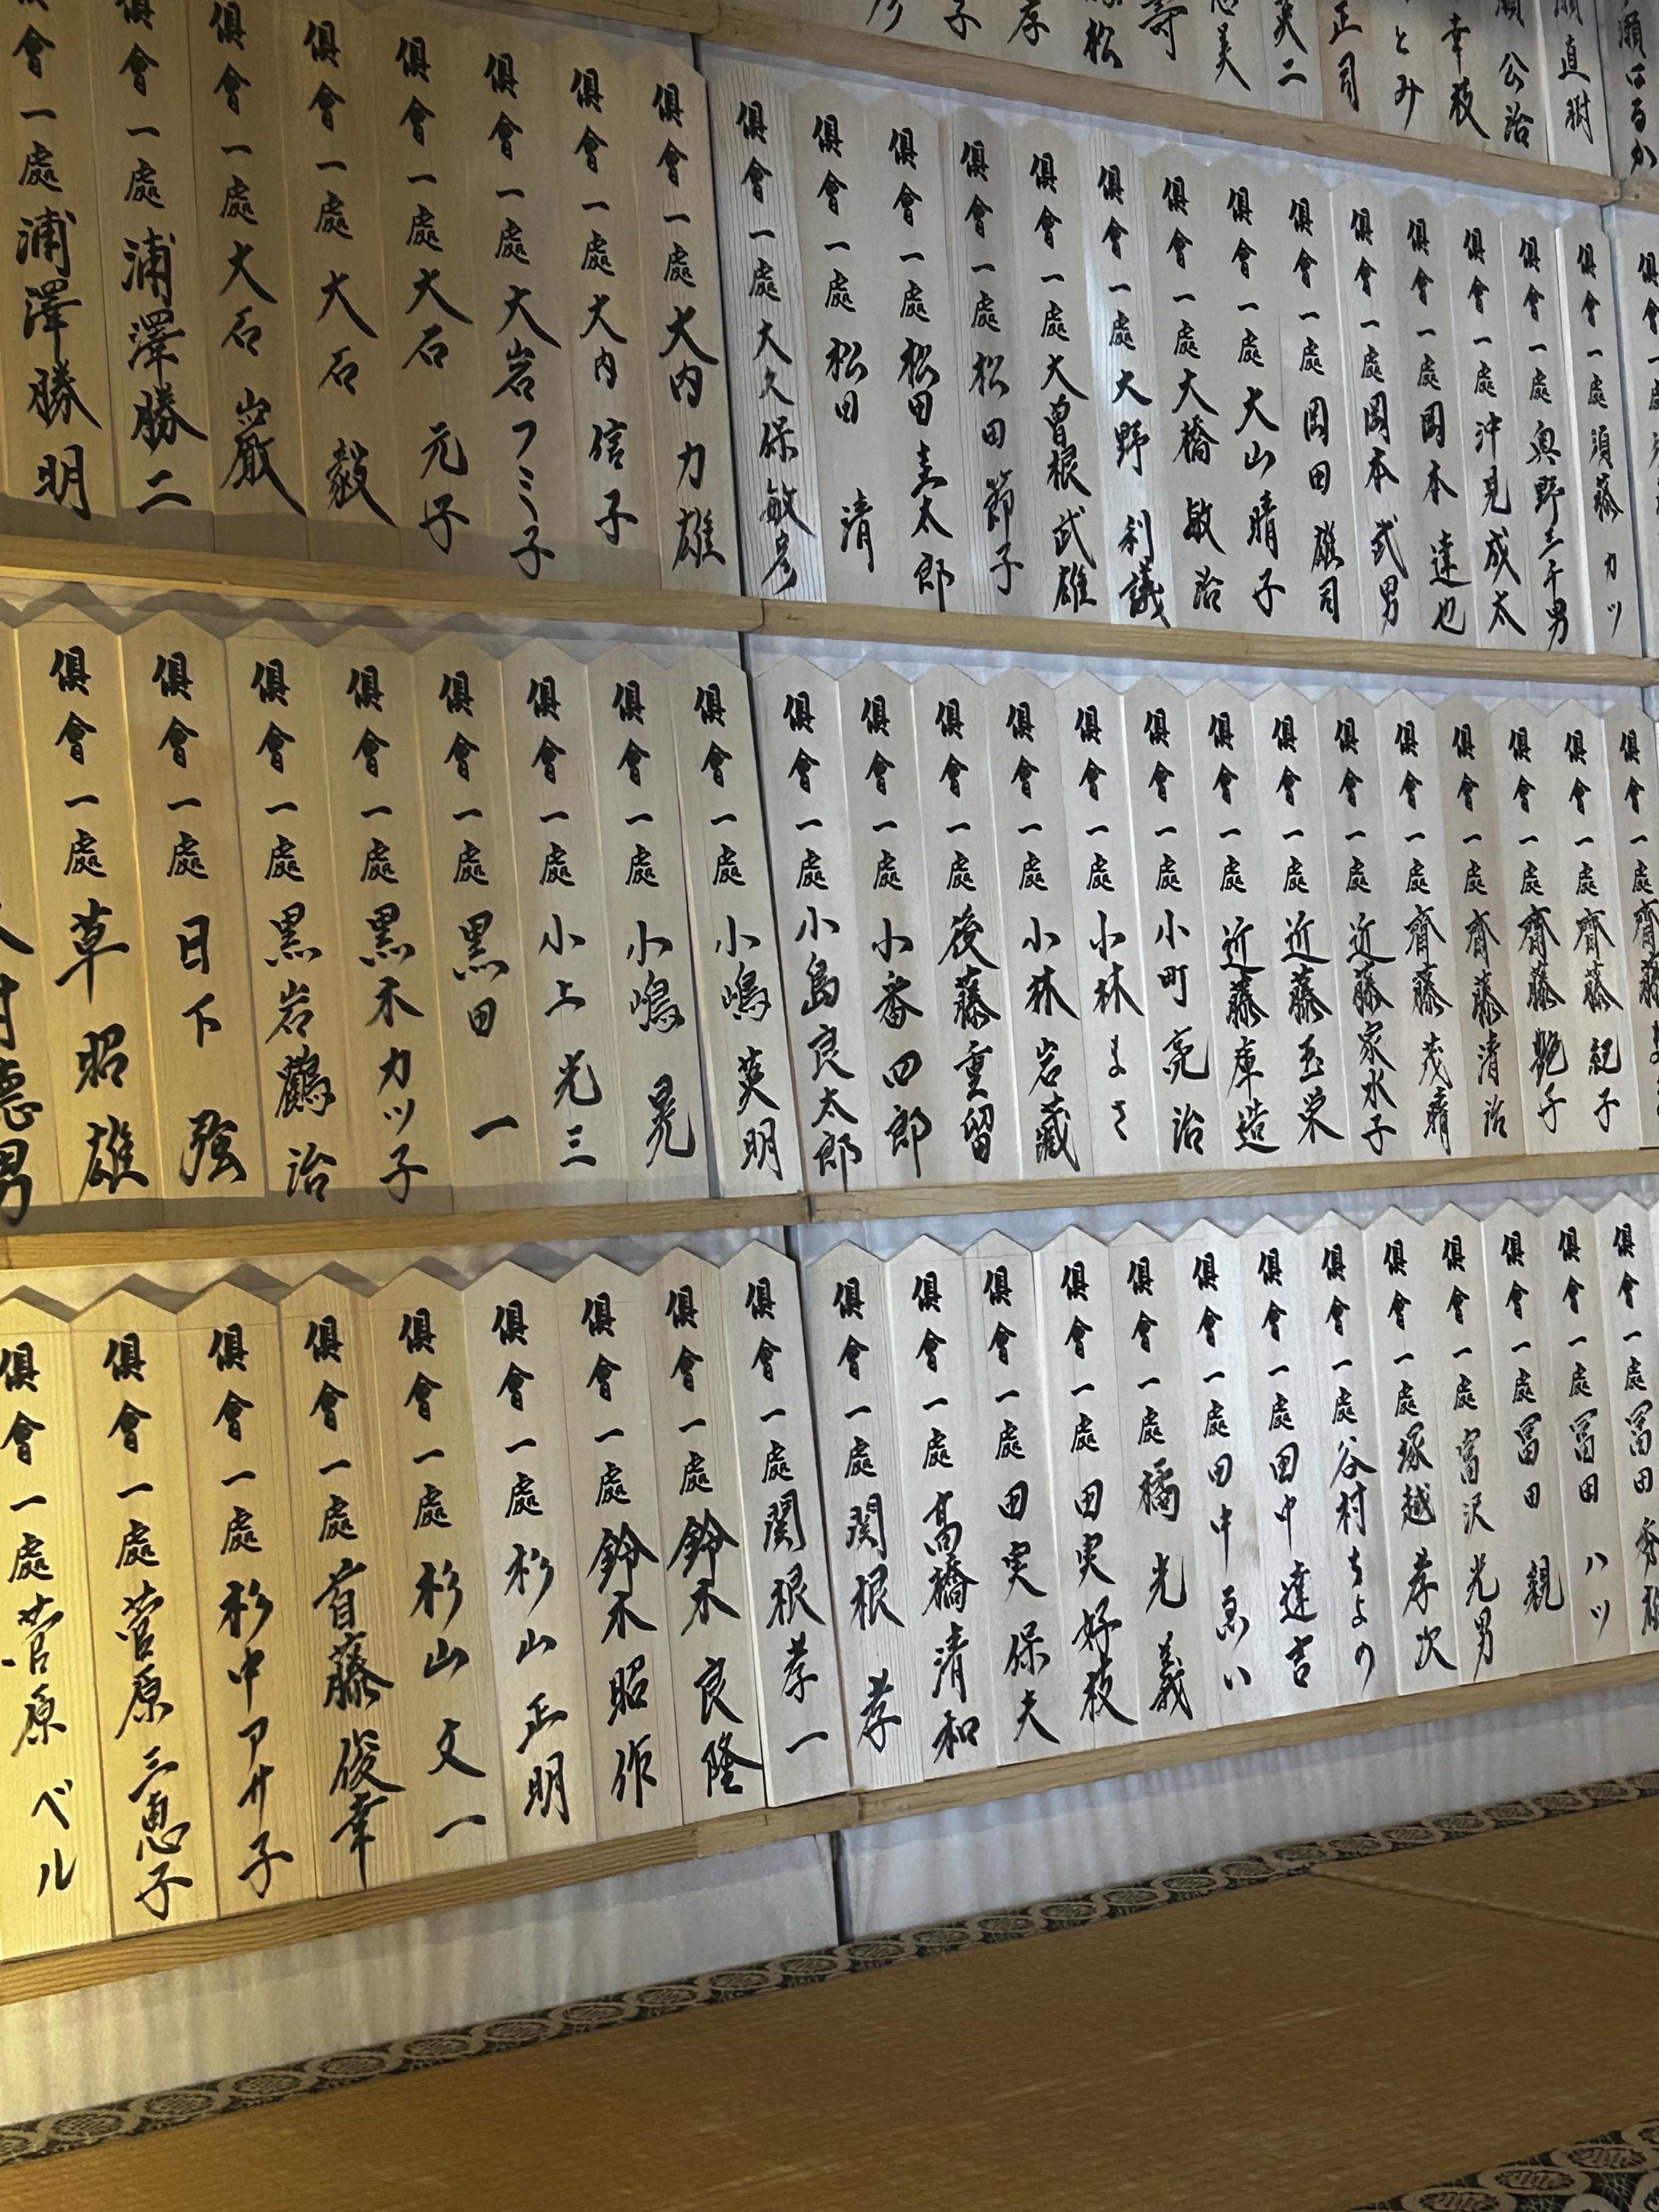 瀬はるか
直樹
公治
幸枝
とみ
正司
英二
美
寿
松
孝
子
俱會一處 須藤 カツ
俱會一處 奥野三千男
俱會一處 沖見成太
俱會一處 岡本 達也
俱會一處 岡本 武男
俱會一處 岡田 雄司
俱會一處 大山 晴子
俱會一處 大橋 敏治
俱會一處 大野 利議
俱會一處 大曽根武雄
俱會一處 松田 節子
俱會一處 松田圭太郎
俱會一處 松田 清
俱會一處 大久保敏彦
俱會一處 大内 力雄
俱會一處 大内 信子
俱會一處 大岩フミ子
俱會一處 大石 元子
俱會一處 大石 毅
俱會一處 大石 巌
俱會一處 浦澤勝二
俱會一處 浦澤勝明
俱會一處 齊藤
俱會一處 齊藤 紀子
俱會一處 齊藤 艶子
俱會一處 齊藤 清治
俱會一處 齊藤 茂晴
俱會一處 近藤家水子
俱會一處 近藤玉栄
俱會一處 近藤庫造
俱會一處 小町 亮治
俱會一處 小林 まさ
俱會一處 小林 岩藏
俱會一處 後藤重留
俱會一處 小番四郎
俱會一處 小島良太郎
俱會一處 小嶋 英明
俱會一處 小嶋 晃
俱會一處 小上 光三
俱會一處 黒田 一
俱會一處 黒木カツ子
俱會一處 黒岩鶴治
俱會一處 日下 強
俱會一處 草 昭雄
村徳男
俱會一處 冨田 秀雄
俱會一處 冨田 ハツ
俱會一處 冨田 親
俱會一處 富沢 光男
俱會一處 塚越 孝次
俱會一處 谷村ちよの
俱會一處 田中 達吉
俱會一處 田中 ゑい
俱會一處 橘 光義
俱會一處 田実好枝
俱會一處 田実保夫
俱會一處 高橋清和
俱會一處 関根 孝
俱會一處 関根孝一
俱會一處 鈴木 良隆
俱會一處 鈴木 昭作
俱會一處 杉山 正明
俱會一處 杉山 文一
俱會一處 首藤俊幸
俱會一處 杉中アサ子
俱會一處 菅原三恵子
俱會一處 菅原 ベル